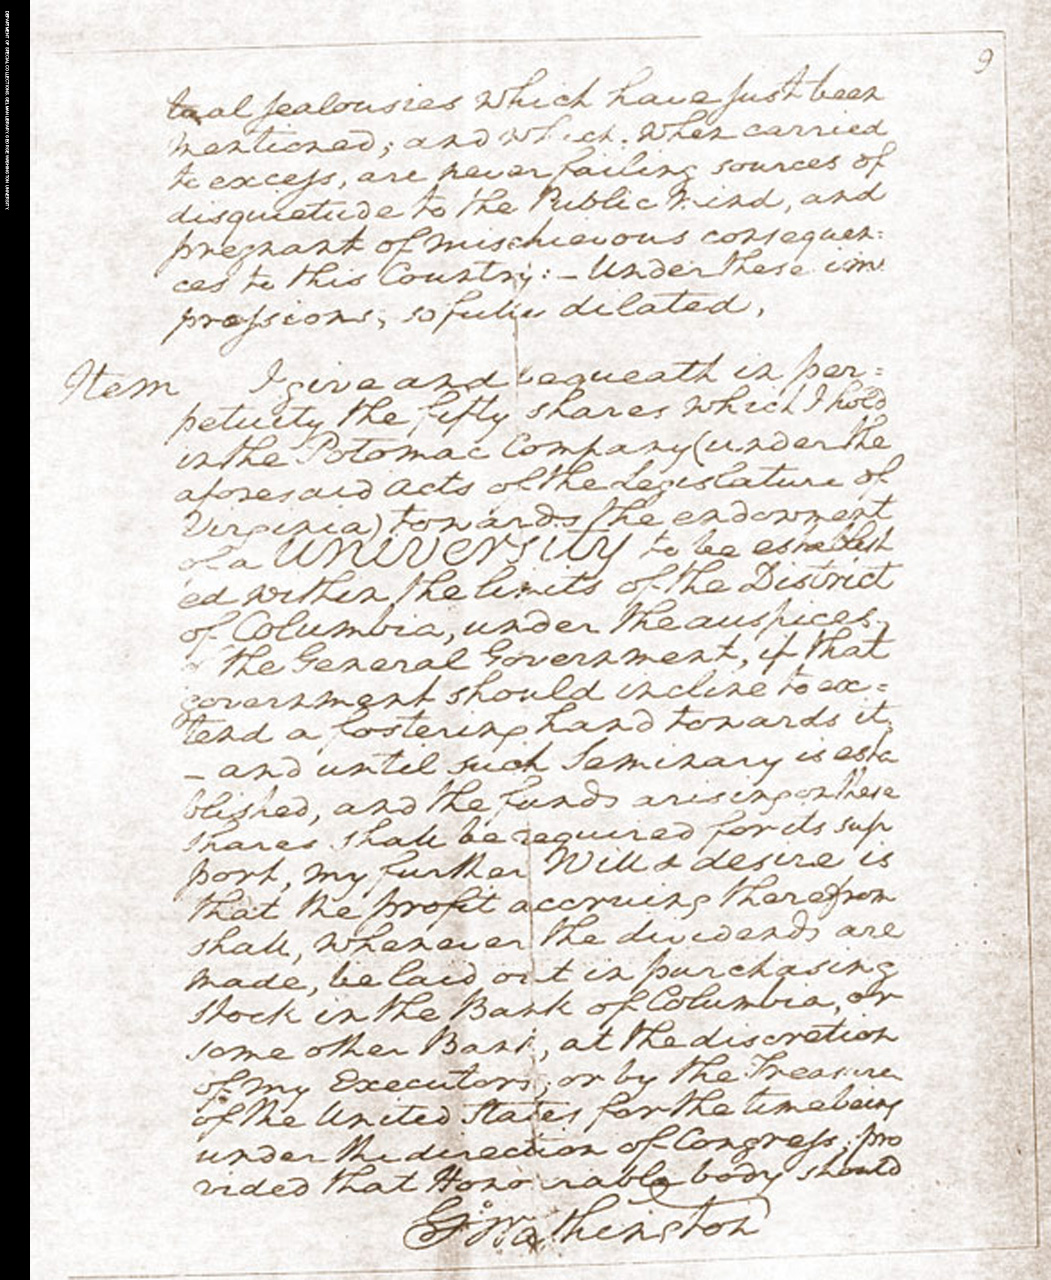 9
tual jealousies which have just been
mentioned; and which, when carried
to excess, are never failing sources of
disquietude to the Public Mind, and
pregnant of mischievous consequen:
ces to this Country: – Under these im
pressions, so fully dilated,
Item I give and bequeath in per=
petuity the fifty shares which I hold
in the Potomac Company (under the
aforesaid Acts of the Legislature of
Virginia) towards the endowment
of a UNIVERSITY to be establish
ed within the limits of the District
of Columbia, under the auspices
of the General Government, if that
government should incline to ex=
tend a fostering hand towards it,
– and until such Seminary is esta
blished, and the funds arising on these
shares shall be required for its sup
port, my further Will & desire is
that the profit accruing therefrom
shall, whenever the dividends are
made, be laid out in purchasing
stock in the Bank of Columbia, or
some other Bank, at the discretion
of my Executors; or by the Treasurer
of the United States for the time being
under the direction of Congress; pro
vided that Honourable body should
Go Washington
DEPARTMENT OF SPECIAL COLLECTIONS, GELMAN LIBRARY, GEORGE WASHINGTON UNIVERSITY